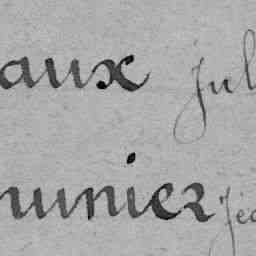 aux Jul
unier Jea